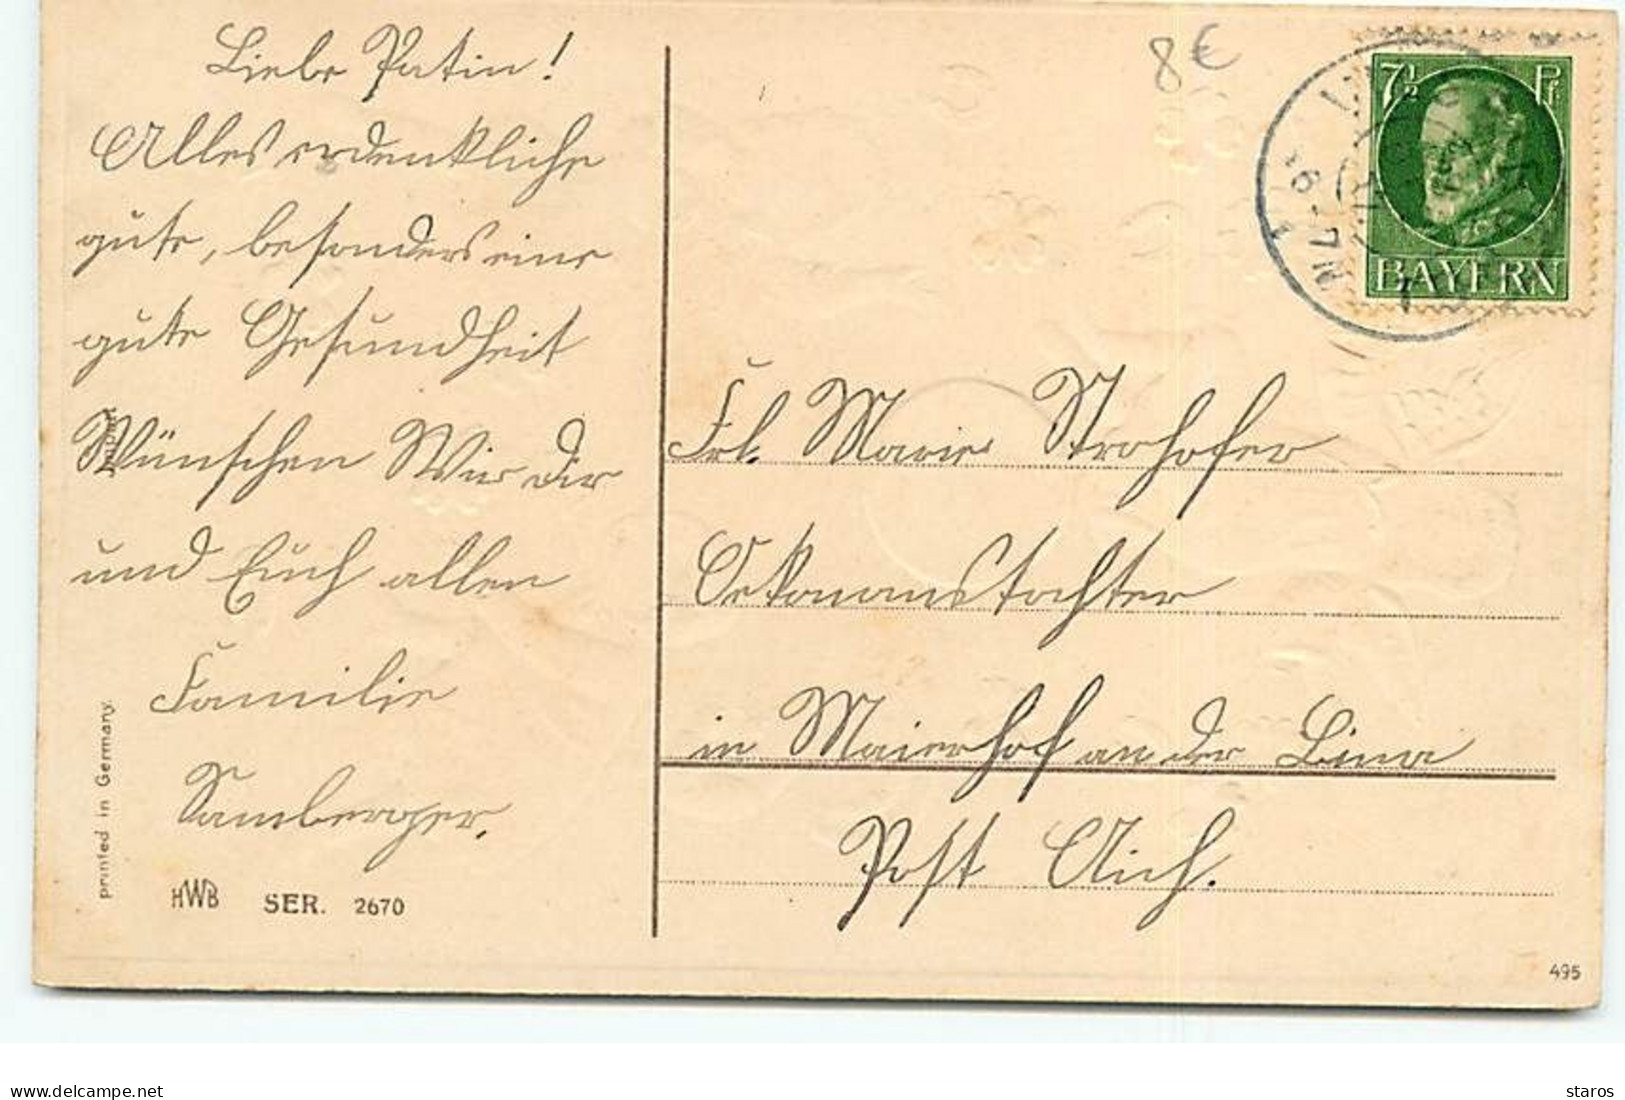 Liebe Patin!
Alles erdenkliche
gute, besonders eine
gute Gesundheit
Wünschen Wir Dir
und Euch allen
Familie
Samberger.
printed in Germany.
HWB SER. 2670
8€
7½ Pf.
BAYERN
Frl. Marie Strohofer
Oekonomstochter
in Maierhof an der Bina
Post Aich.
495
delcampe.net
staros